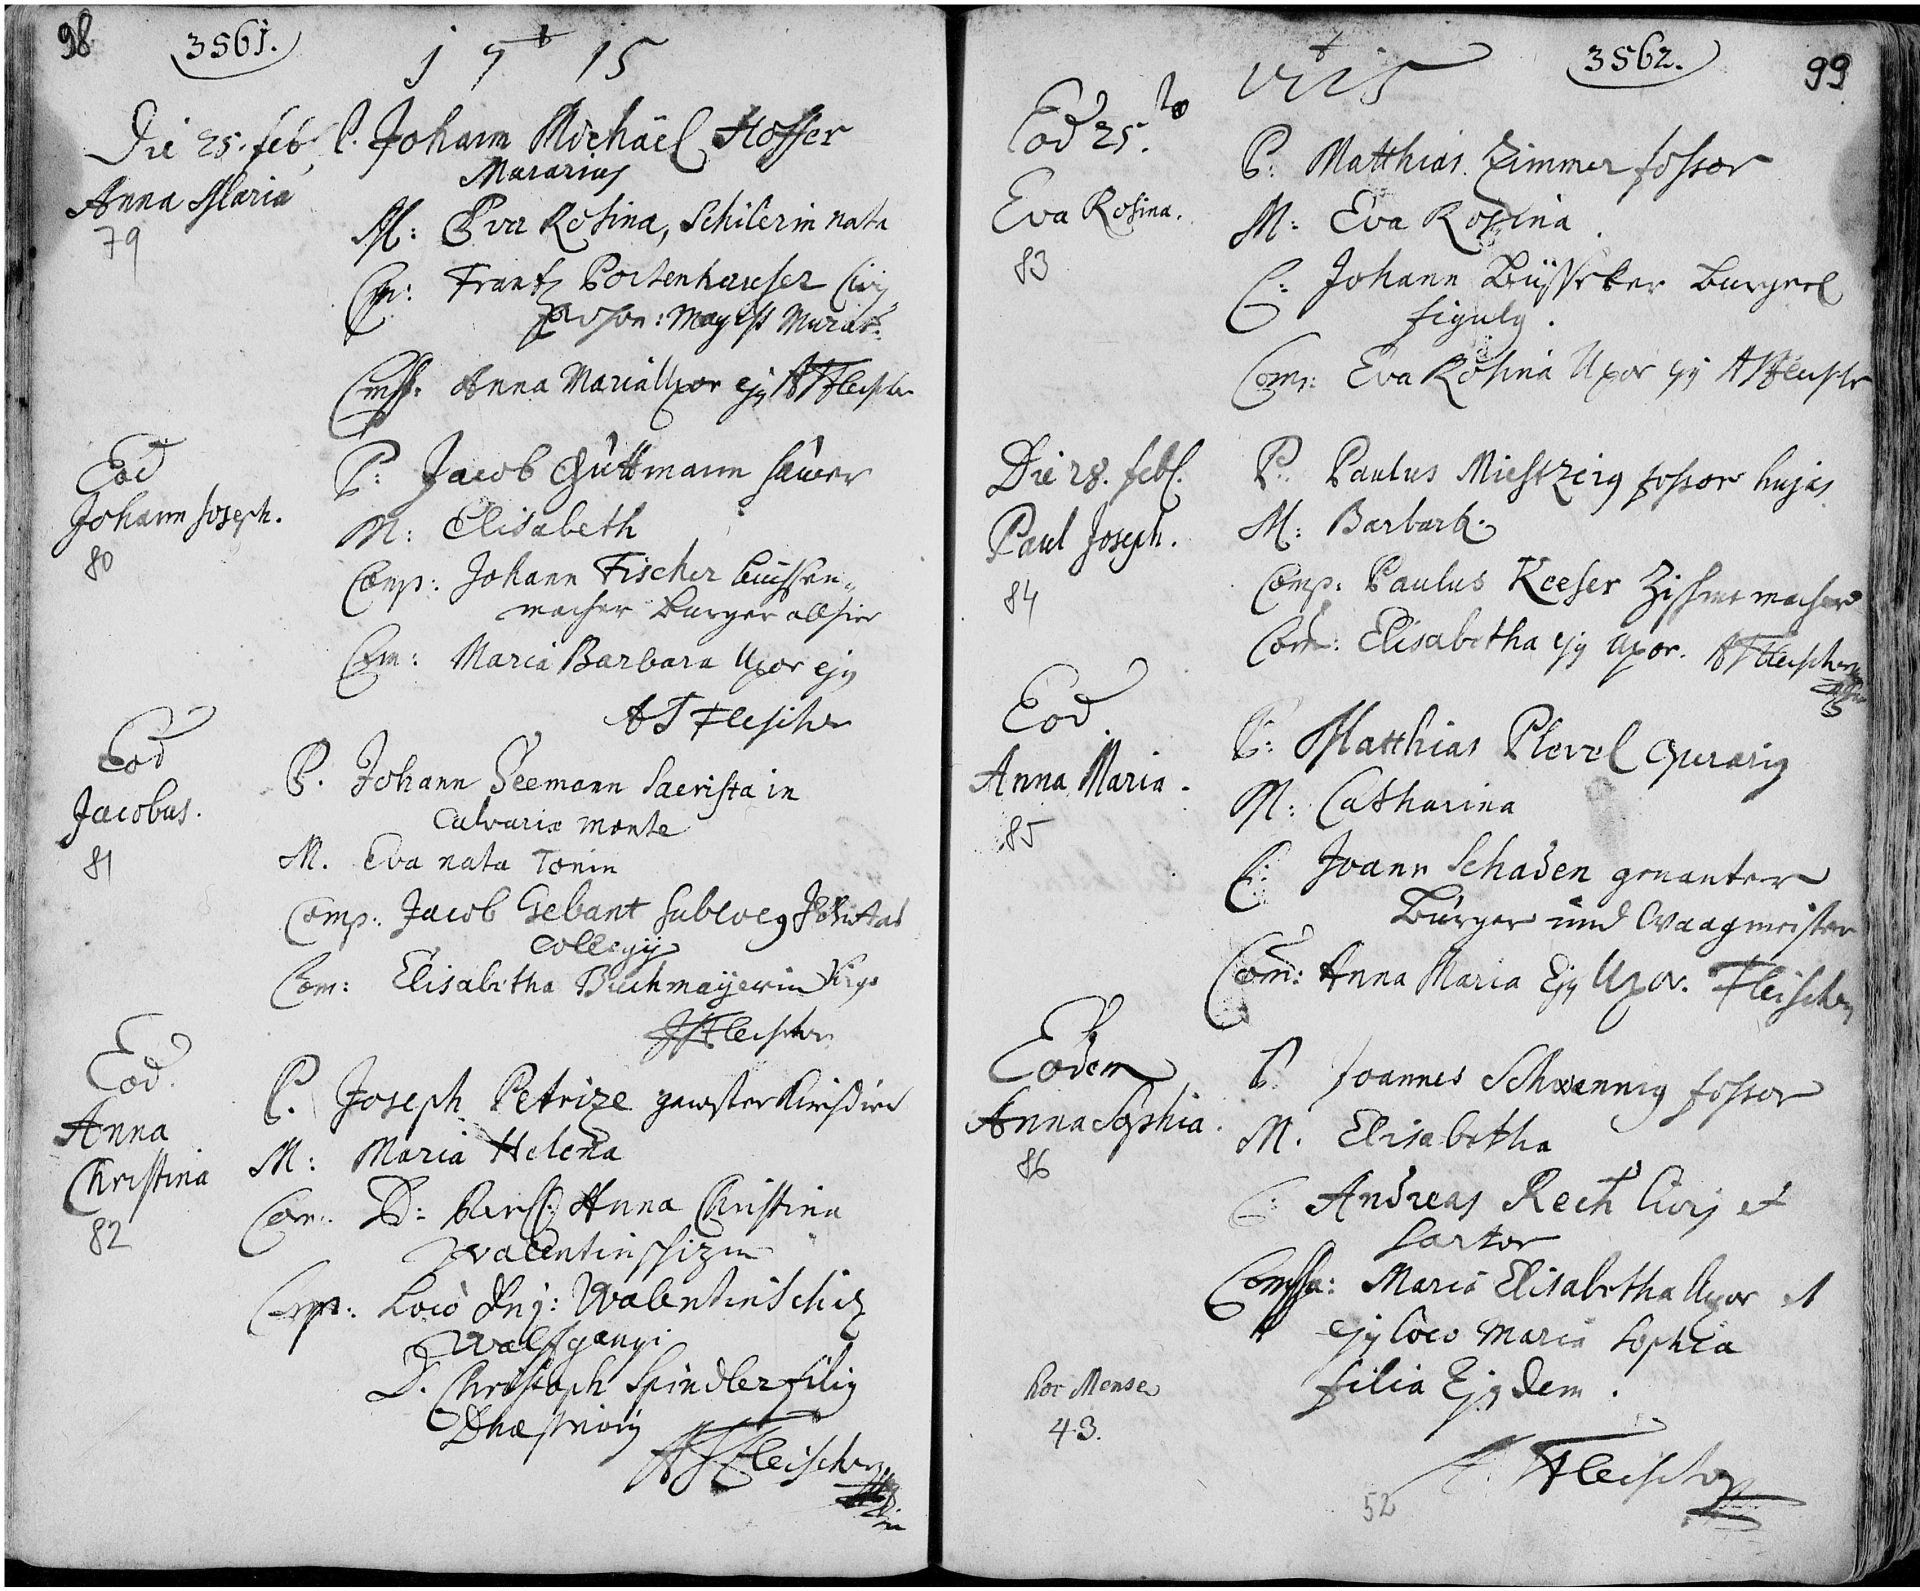 98
3561.
1715
Die 25. feb. P. Johann Michäel Hoffer
Murarius
Anna Maria
79
M: Eva Rosina, Schilerin nata
Frantz Portenhauser Civis
Murar:
Anna Maria Uxor ejus AJFleischer
Eod
Johann Joseph.
80
P: Jacob Güttmann hawer
M: Elisabeth
Comp: Johann Fischer büchsen-
macher burger allhier
Com: Maria Barbara Uxor ejus
AJFleischer
Eod
Jacobus.
81
P. Johann Seemann Sacrista in
Calvariæ monte
M. Eva nata Tonin
Comp: Jacob Gebant
Collegij
Com: Elisabetha Buchmaÿerin Virgo
Fleischer
Eod.
Anna
Christina
82
P. Joseph Petrize
M: Maria Helena
Com: D: Anna Christina
Valentinschizin
Comp: Loco Dni: Walentinschiz
Wolfgangi
D. Christoph Spindler filius
AJFleischer
1715
3562.
99
Eod 25.
Eva Rosina.
83
P: Matthias Zimmer fossor
M: Eva Rosina.
C: Johann burgerl
figulus.
Com: Eva Rosina Uxor ejus AJFleischer
Die 28. feb.
Paul Joseph.
84
P. Paulus fossor hujas
M: Barbara
Comp: Paulus Keeser Zischmemacher
Com: Elisabetha ejus Uxor. AJFleischer
Eod.
Anna Maria.
85
P: Matthias Plevel operarius
M: Catharina
C: Joann Schaden genanter
Bürger und Waagmeister
Com: Anna Maria Ejus Uxor. Fleischer
Eodem
Anna Sophia.
86
P. Joannes fossor
M. Elisabetha
C: Andreas Rech Civis et
Sartor
Comssa: Maria Elisabetha Uxor
ejus loco Maria Sophia
filia Ejusdem.
hoc Mense
43.
Fleischer
52